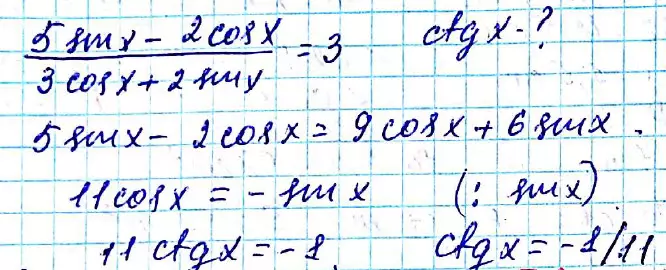 5 sin x - 2 cos x / 3 cos x + 2 sin x = 3 ctg x - ?
5 sin x - 2 cos x = 9 cos x + 6 sin x.
11 cos x = - sin x (: sin x)
11 ctg x = -1. ctg x = -1/11